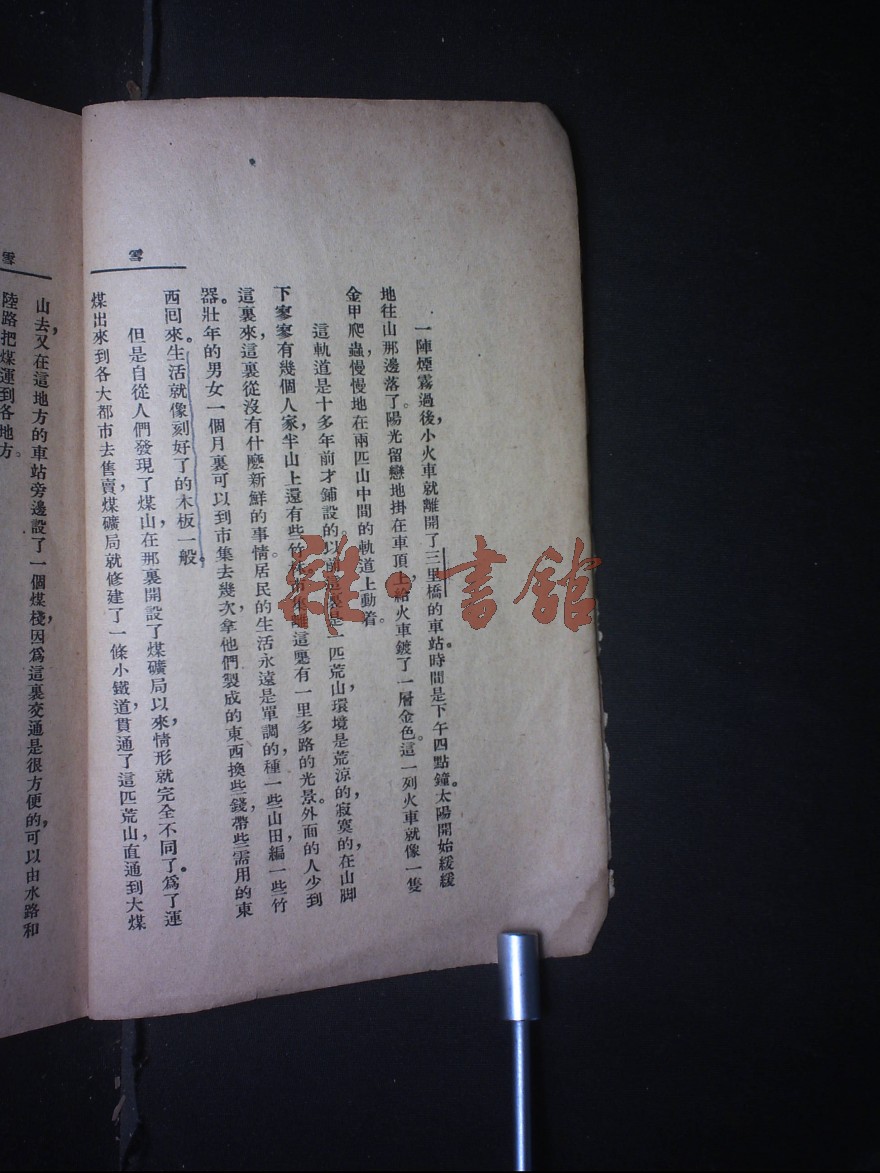 雪
一陣煙霧過後，小火車就離開了三里橋的車站。時間是下午四點鐘。太陽開始緩緩
地往山那邊落了。陽光留戀地掛在車頂上，給火車鍍了一層金色。這一列火車就像一隻
金甲爬蟲，慢慢地在兩匹山中間的軌道上動着。
這軌道是十多年前才鋪設的。以前這裏是一匹荒山，環境是荒涼的，寂寞的，在山脚
下寥寥有幾個人家，半山上還有些竹林。市集離這裏有一里多路的光景。外面的人少到
這裏來，這裏從沒有什麽新鮮的事情。居民的生活永遠是單調的，種一些山田，編一些竹
器。壯年的男女一個月裏可以到市集去幾次，拿他們製成的東西換些錢，帶些需用的東
西囘來。生活就像刻好了的木板一般。
但是自從人們發現了煤山，在那裏開設了煤礦局以來，情形就完全不同了。爲了運
煤出來到各大都市去售賣，煤礦局就修建了一條小鐵道，貫通了這匹荒山，直通到大煤
雪
山去，又在這地方的車站旁邊設了一個煤棧，因爲這裏交通是很方便的，可以由水路和
陸路把煤運到各地方。
雜·書館